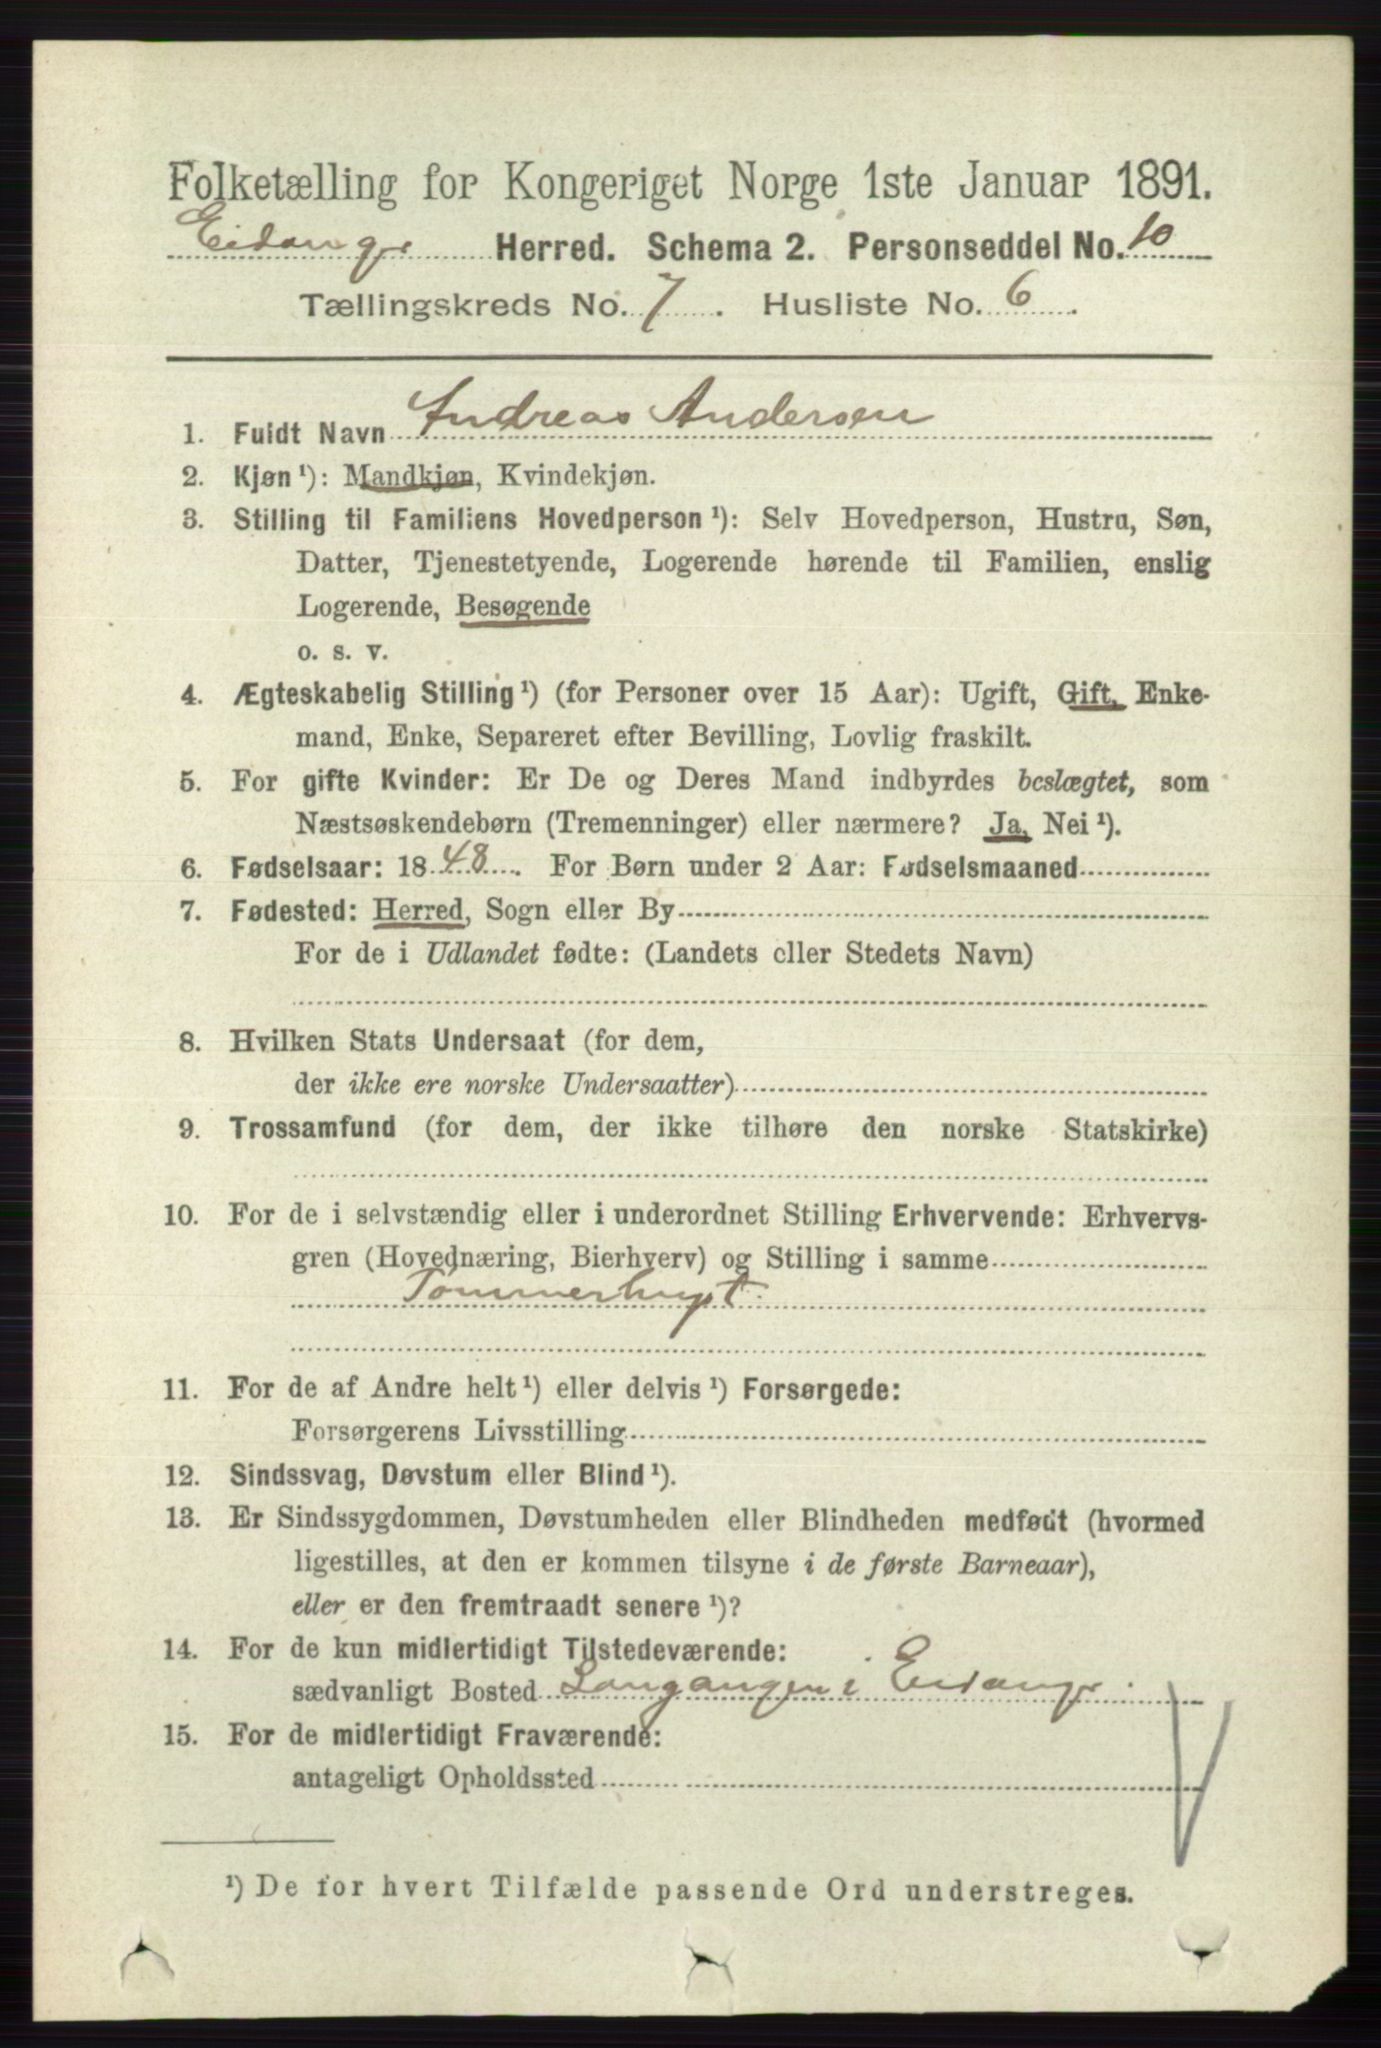 Folketælling for Kongeriget Norge 1ste Januar 1891.
Eidanger Herred. Schema 2. Personseddel No. 10
Tællingskreds No. 7. Husliste No. 6.
1. Fuldt Navn Andreas Andersen
2. Kjøn ¹): Mandkjøn, Kvindekjøn.
3. Stilling til Familiens Hovedperson ¹): Selv Hovedperson, Hustru, Søn,
Datter, Tjenestetyende, Logerende hørende til Familien, enslig
Logerende, Besøgende
o. s. v.
4. Ægteskabelig Stilling ¹) (for Personer over 15 Aar): Ugift, Gift, Enke-
mand, Enke, Separeret efter Bevilling, Lovlig fraskilt.
5. For gifte Kvinder: Er De og Deres Mand indbyrdes beslægtet, som
Næstsøskendebørn (Tremenninger) eller nærmere? Ja, Nei ¹).
6. Fødselsaar: 1848. For Børn under 2 Aar: Fødselsmaaned
7. Fødested: Herred, Sogn eller By
For de i Udlandet fødte: (Landets eller Stedets Navn)
8. Hvilken Stats Undersaat (for dem,
der ikke ere norske Undersaatter)
9. Trossamfund (for dem, der ikke tilhøre den norske Statskirke)
10. For de i selvstændig eller i underordnet Stilling Erhvervende: Erhvervs-
gren (Hovednæring, Bierhverv) og Stilling i samme
Tømmerhugst
11. For de af Andre helt ¹) eller delvis ¹) Forsørgede:
Forsørgerens Livsstilling
12. Sindssvag, Døvstum eller Blind ¹).
13. Er Sindssygdommen, Døvstumheden eller Blindheden medfødt (hvormed
ligestilles, at den er kommen tilsyne i de første Barneaar),
eller er den fremtraadt senere ¹)?
14. For de kun midlertidigt Tilstedeværende:
sædvanligt Bosted Langangen i Eidanger.
15. For de midlertidigt Fraværende:
antageligt Opholdssted
¹) De for hvert Tilfælde passende Ord understreges.